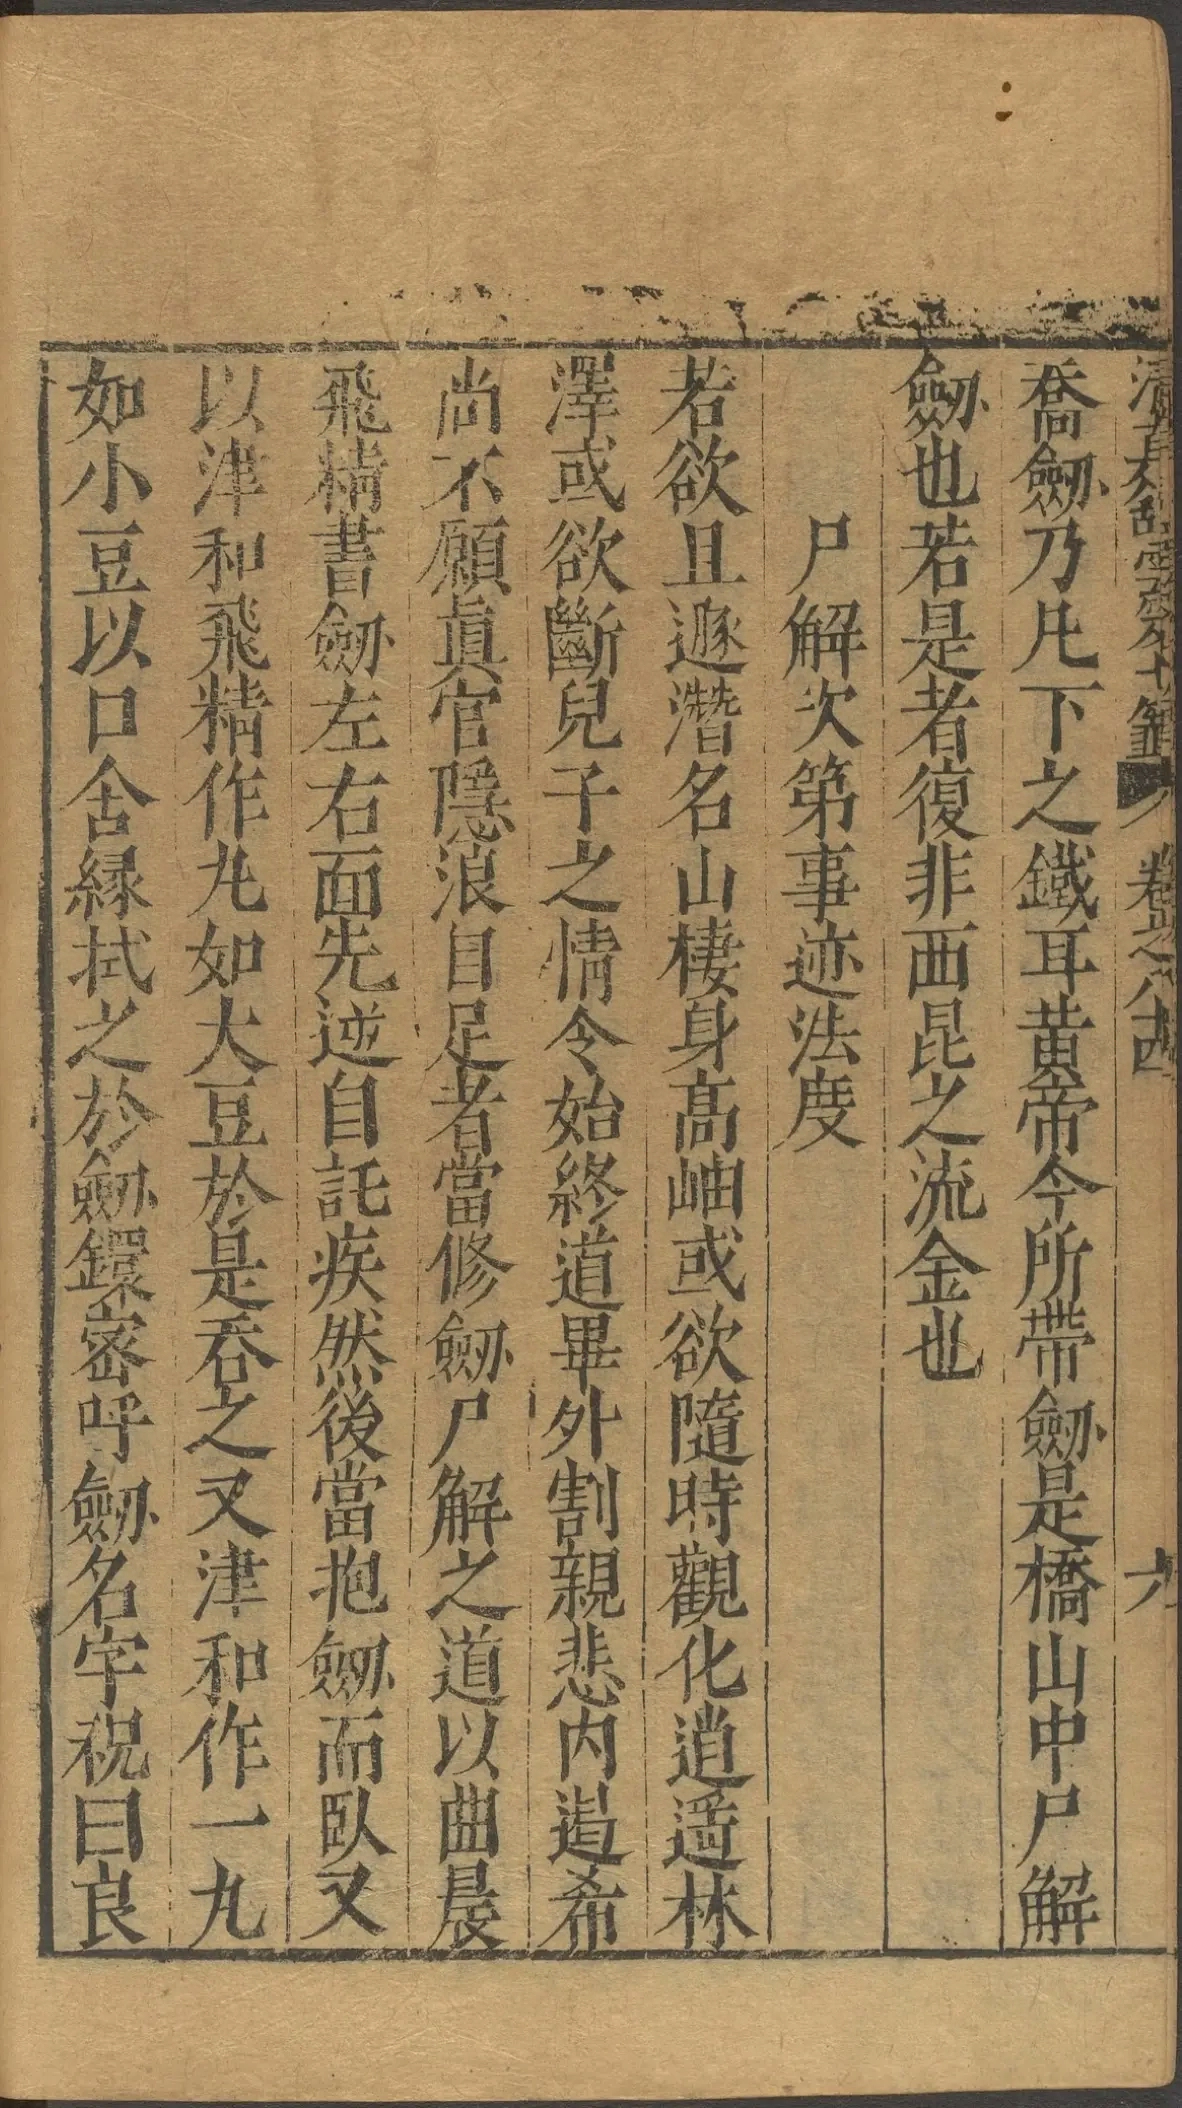 卷之八十四 六
喬劒乃凡下之鐵耳黃帝今所帶劒是橋山中尸解
劒也若是者復非西昆之流金也
尸解次第事迹法度
若欲且遯潛名山棲身高岫或欲隨時觀化逍遥林
澤或欲斷兒子之情令始終道畢外割親悲内遏希
尚不願眞官隱浪自足者當修劒尸解之道以曲晨
飛精書劒左右面先逆自託疾然後當抱劒而臥又
以津和飛精作丸如大豆於是吞之又津和作一丸
如小豆以口含縁拭之於劒鐶密呼劒名字祝曰良